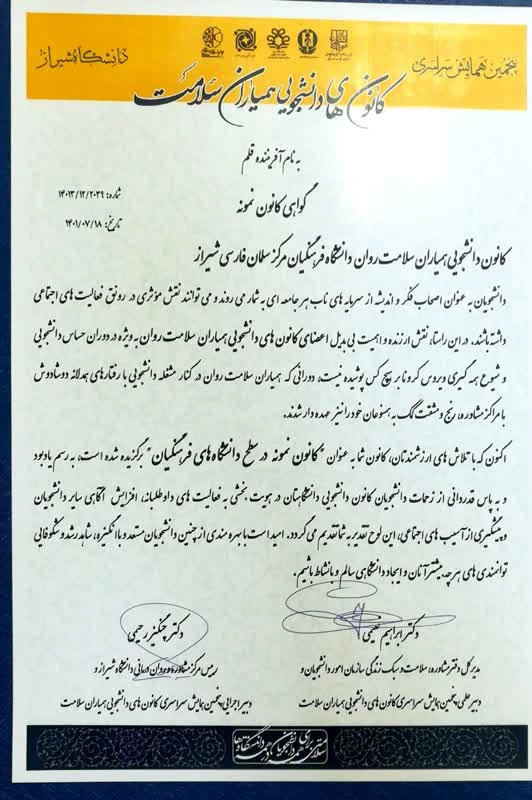 پنجمین همایش سراسری
دانشگاه شیراز
کانون های دانشجویی همیاران سلامت
به نام آفریننده قلم
شماره: ۱۴۰۱۳/۱۲/۲۰۳۹
گواهی کانون نمونه
تاریخ: ۱۴۰۱/۰۷/۱۸
کانون دانشجویی همیاران سلامت روان دانشگاه فرهنگیان مرکز سلمان فارسی شیراز
دانشجویان به عنوان اصحاب فکر و اندیشه از سرمایه های ناب هر جامعه ای به شمار می روند و می توانند نقش مؤثری در رونق فعالیت های اجتماعی
داشته باشند. در این راستا، نقش ارزنده و اهمیت بی بدیل اعضای کانون های دانشجویی همیاران سلامت روان به ویژه در دوران حساس دانشجویی
و شیوع همه گیری ویروس کرونا بر هیچ کس پوشیده نیست، دورانی که همیاران سلامت روان در کنار مشغله دانشجویی با رفتارهای همدلانه دوشادوش
با مراکز مشاوره، رنج و مشقت کمک به همنوعان خود را نیز عهده دار شدند.
اکنون که با تلاش های ارزشمندتان، کانون شما به عنوان "کانون نمونه در سطح دانشگاه های فرهنگیان" برگزیده شده است، به رسم یادبود
و به پاس قدردانی از زحمات دانشجویان کانون دانشجویی دانشگاهتان در هویت بخشی به فعالیت های داوطلبانه، افزایش آگاهی سایر دانشجویان
و پیشگیری از آسیب های اجتماعی، این لوح تقدیر به شما تقدیم می گردد. امید است با بهره مندی از چنین دانشجویان مستعد و با انگیزه، شاهد رشد و شکوفائی
توانمندی های هر چه بیشتر آنان و ایجاد دانشگاهی سالم و با نشاط باشیم.
دکتر ابراهیم نعیمی
مدیر کل دفتر مشاوره، سلامت و سبک زندگی سازمان امور دانشجویان و
دبیر علمی پنجمین همایش سراسری کانون های دانشجویی همیاران سلامت
دکتر چنگیز رحیمی
رییس مرکز مشاوره و روان درمانی دانشگاه شیراز و
دبیر اجرایی پنجمین همایش سراسری کانون های دانشجویی همیاران سلامت